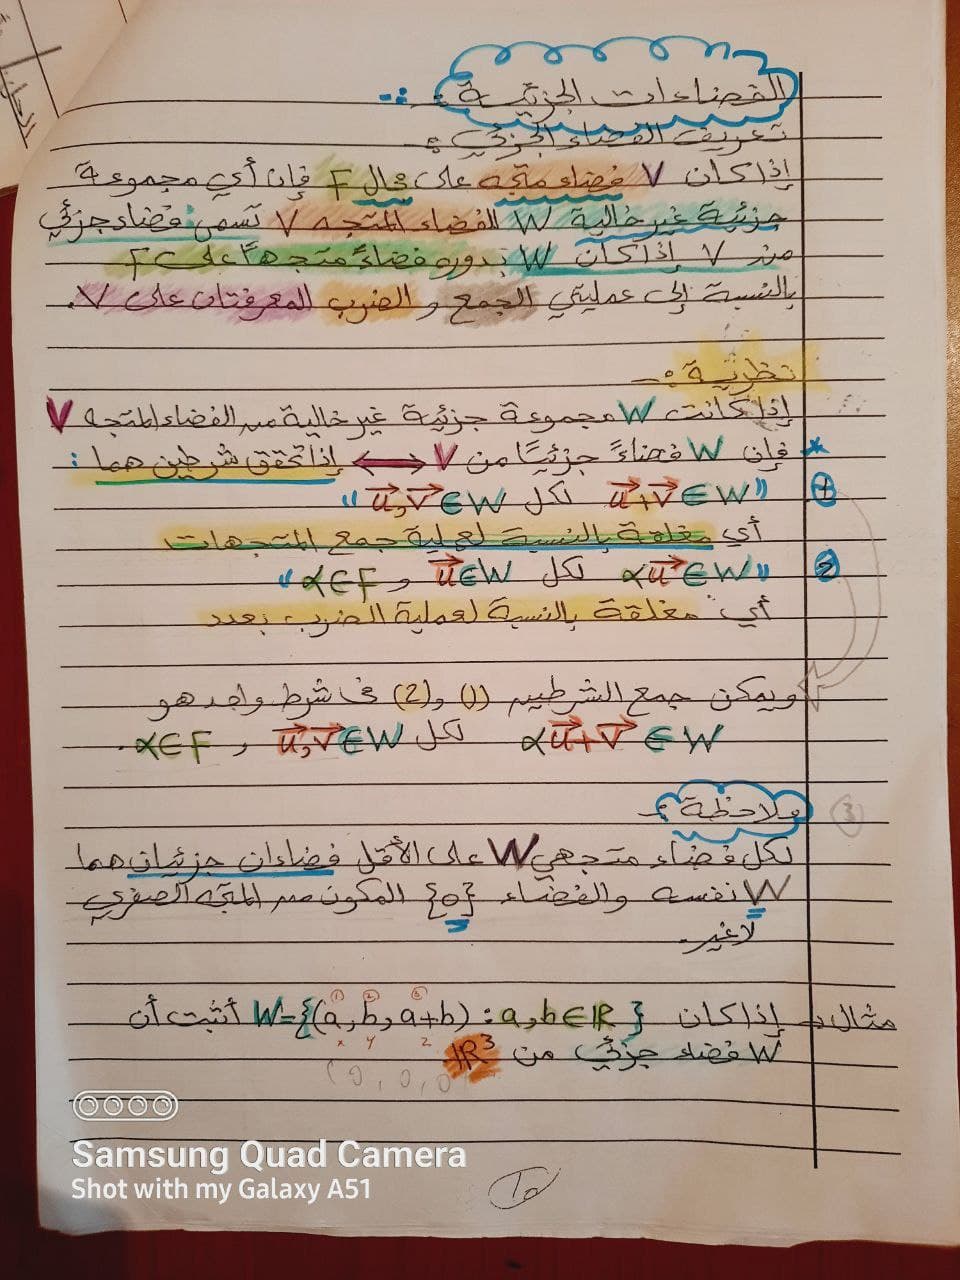 الفضاءات الجزئية :-
تعريف الفضاء الجزئي :-
إذا كان V فضاء متجه على مجال F فإن أي مجموعة
جزئية غير خالية W الفضاء المتجه V تسمى فضاء جزئي
من V إذا كان W بدوره فضاءً متجهاً على F
بالنسبة إلى عمليتي الجمع و الضرب المعرفتان على V.
نظرية :-
إذا كانت W مجموعة جزئية غير خالية من الفضاء المتجه V
* فإن W فضاءً جزئيًا من V ⟷ إذا تحقق شرطين هما :
① "u⃗+v⃗ ∈ W لكل u⃗,v⃗ ∈ W"
أي مغلقة بالنسبة لعملية جمع المتجهات
② "αu⃗ ∈ W لكل u⃗ ∈ W و α ∈ F"
أي مغلقة بالنسبة لعملية الضرب بعدد
ويمكن جمع الشرطين (1) و(2) في شرط واحد هو
αu⃗+v⃗ ∈ W لكل u⃗,v⃗ ∈ W و α ∈ F .
ملاحظة :- ③
لكل فضاء متجهي W على الأقل فضاءان جزئيان هما
W نفسه والفضاء {0} المكون من المتجه الصفري
لا غير.
مثال :- إذا كان W={(a,b,a+b) : a,b∈ℝ} أثبت أن
① ② ③
x y z
W فضاء جزئي من ℝ³
(0,0,0)
Samsung Quad Camera
Shot with my Galaxy A51